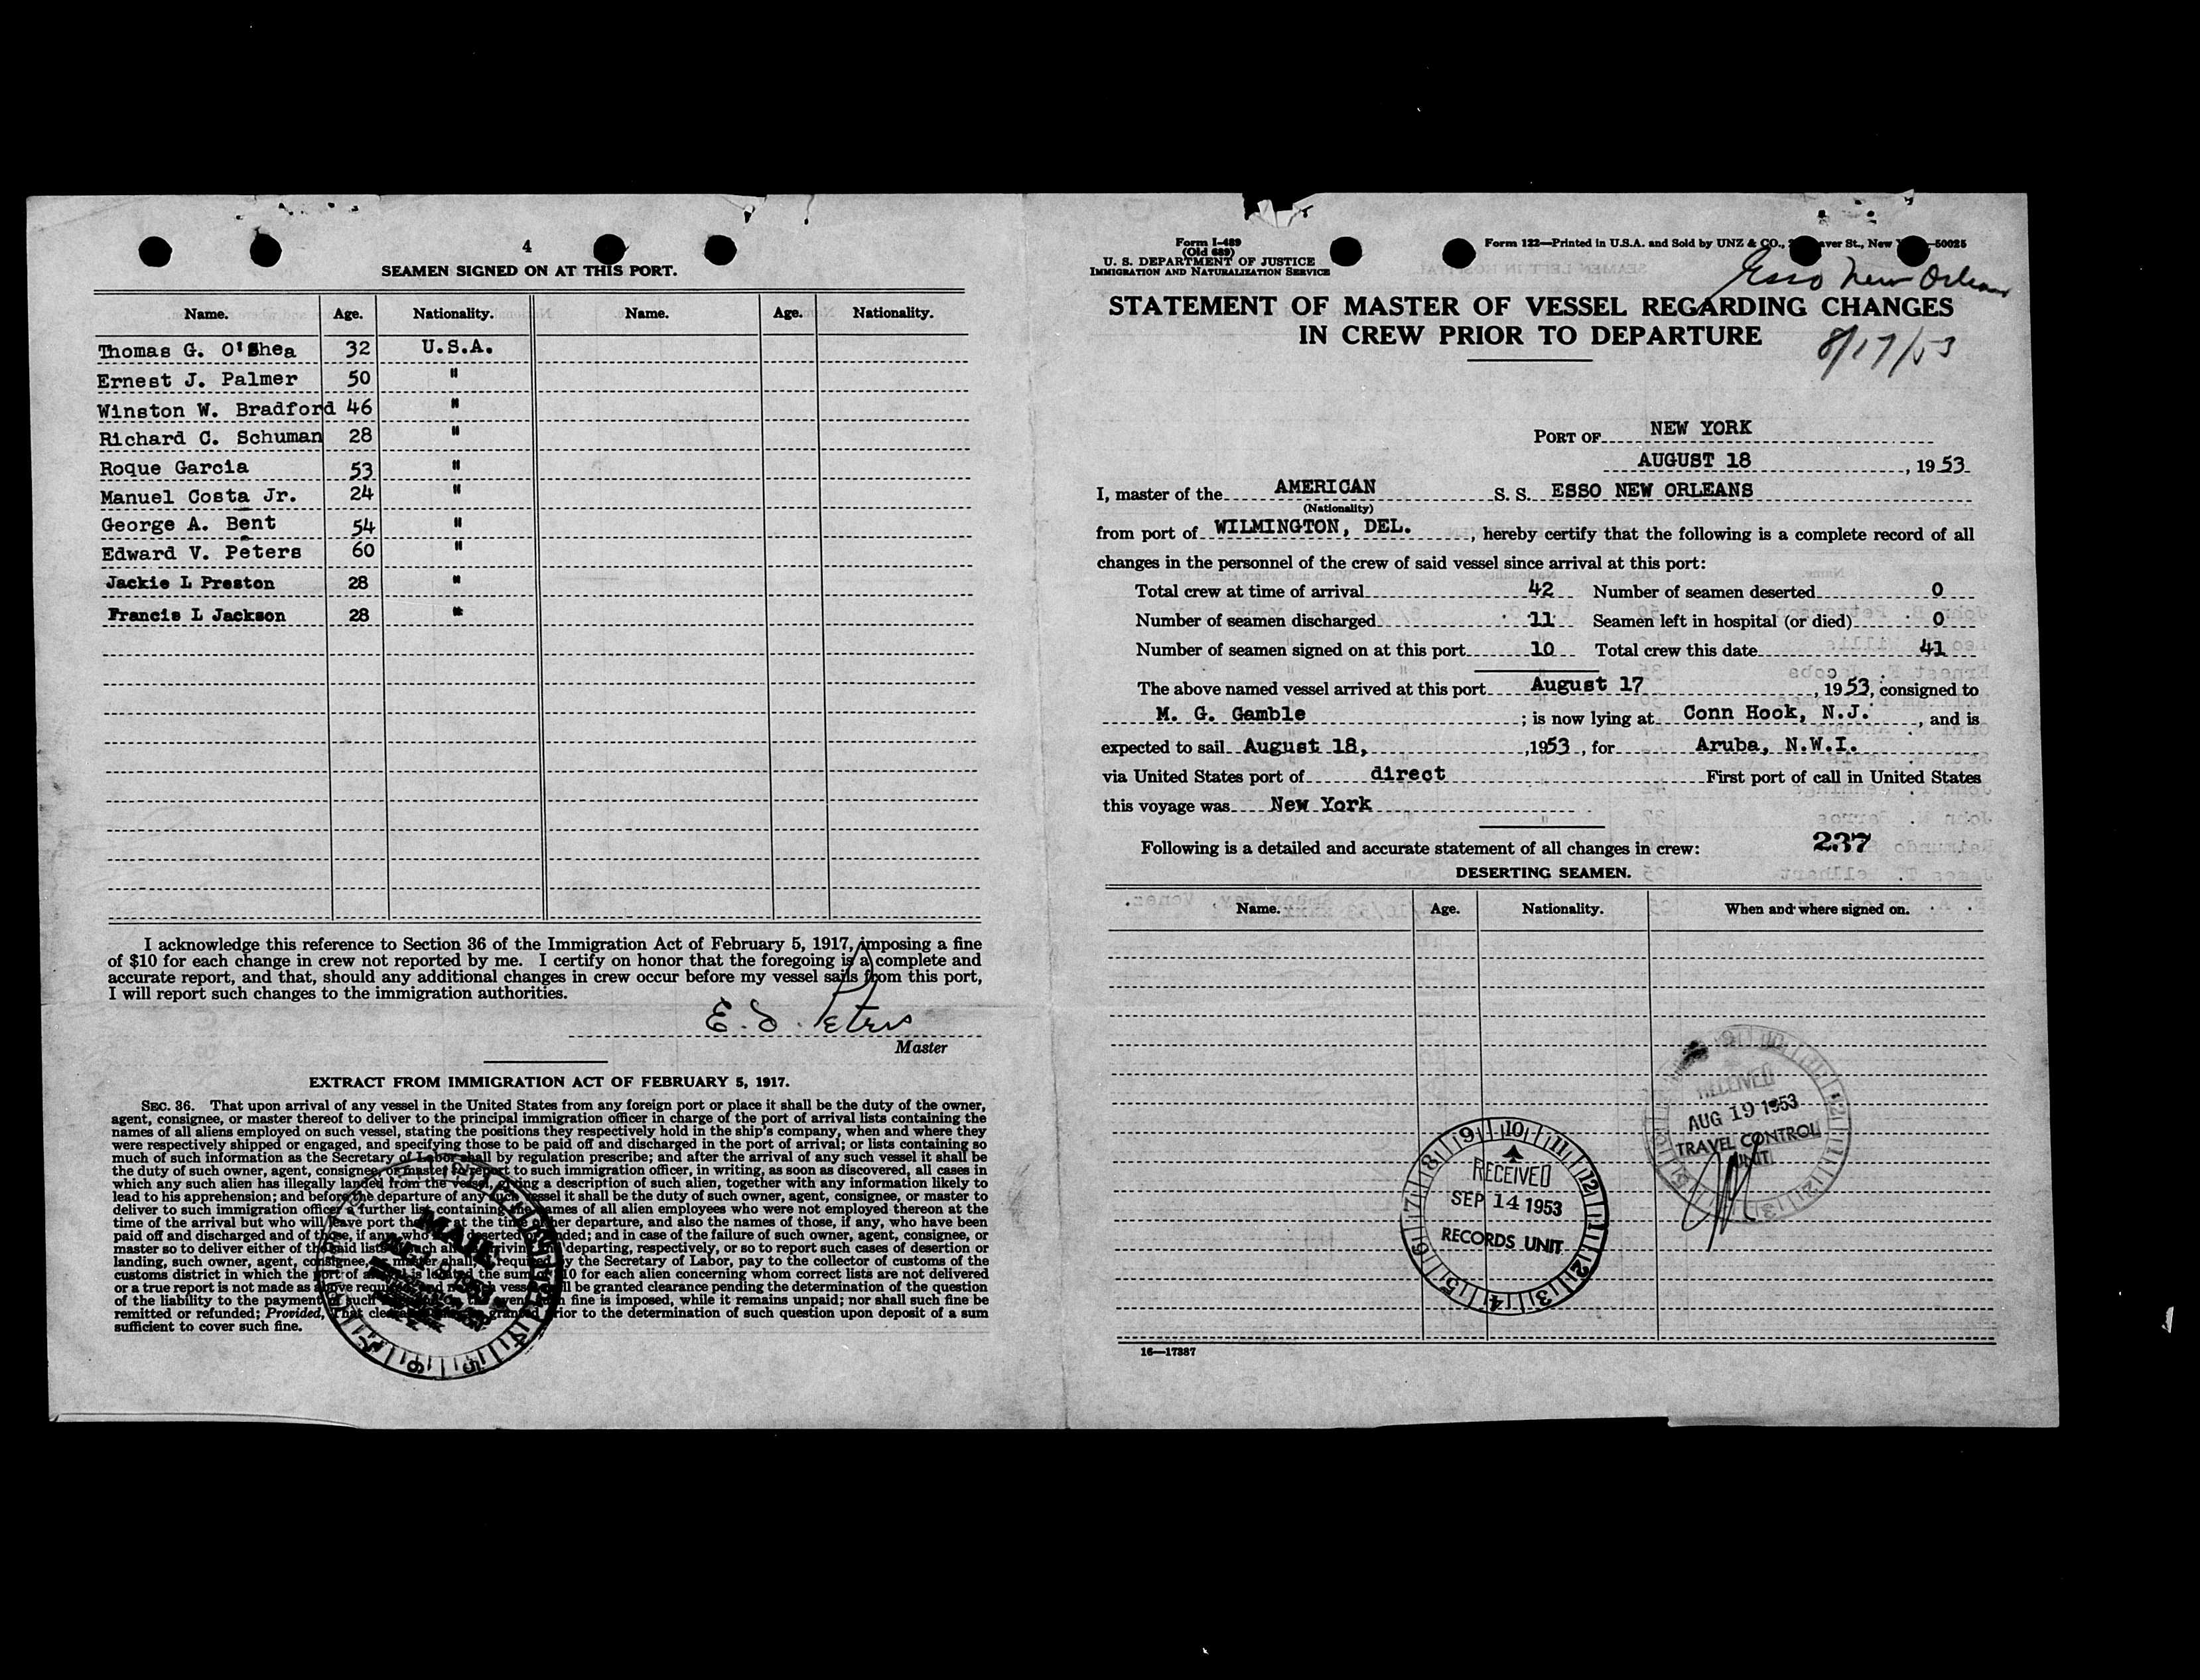 4
SEAMEN SIGNED ON AT THIS PORT.
Name. Age. Nationality. Name. Age. Nationality.
Thomas G. O'Shea 32 U.S.A.
Ernest J. Palmer 50 "
Winston W. Bradford 46 "
Richard C. Schuman 28 "
Roque Garcia 53 "
Manuel Costa Jr. 24 "
George A. Bent 54 "
Edward V. Peters 60 "
Jackie L Preston 28 "
Francis L Jackson 28 "
I acknowledge this reference to Section 36 of the Immigration Act of February 5, 1917, imposing a fine
of $10 for each change in crew not reported by me. I certify on honor that the foregoing is a complete and
accurate report, and that, should any additional changes in crew occur before my vessel sails from this port,
I will report such changes to the immigration authorities.
Master
EXTRACT FROM IMMIGRATION ACT OF FEBRUARY 5, 1917.
SEC. 36. That upon arrival of any vessel in the United States from any foreign port or place it shall be the duty of the owner,
agent, consignee, or master thereof to deliver to the principal immigration officer in charge of the port of arrival lists containing the
names of all aliens employed on such vessel, stating the positions they respectively hold in the ship's company, when and where they
were respectively shipped or engaged, and specifying those to be paid off and discharged in the port of arrival; or lists containing so
much of such information as the Secretary of Labor shall by regulation prescribe; and after the arrival of any such vessel it shall be
the duty of such owner, agent, consignee, or master to report to such immigration officer, in writing, as soon as discovered, all cases in
which any such alien has illegally landed from the vessel, giving a description of such alien, together with any information likely to
lead to his apprehension; and before the departure of any such vessel it shall be the duty of such owner, agent, consignee, or master to
deliver to such immigration officer a further list containing the names of all alien employees who were not employed thereon at the
time of the arrival but who will leave port at the time of her departure, and also the names of those, if any, who have been
paid off and discharged and of those, if any, who deserted or landed; and in case of the failure of such owner, agent, consignee, or
master so to deliver either of the said lists such arriving departing, respectively, or so to report such cases of desertion or
landing, such owner, agent, consignee, master shall, required by the Secretary of Labor, pay to the collector of customs of the
customs district in which the port of is located the sum 10 for each alien concerning whom correct lists are not delivered
or a true report is not made as above required and vessel be granted clearance pending the determination of the question
of the liability to the payment of such fine is imposed, while it remains unpaid; nor shall such fine be
remitted or refunded; Provided, That granted prior to the determination of such question upon deposit of a sum
sufficient to cover such fine.
MAIL
Form I-489
(Old 689)
U. S. DEPARTMENT OF JUSTICE
IMMIGRATION AND NATURALIZATION SERVICE
Form 122—Printed in U.S.A. and Sold by UNZ & CO., St., New 50025
Esso New Orleans
STATEMENT OF MASTER OF VESSEL REGARDING CHANGES
IN CREW PRIOR TO DEPARTURE
8/17/53
PORT OF NEW YORK
AUGUST 18, 1953
I, master of the AMERICAN S. S. ESSO NEW ORLEANS
(Nationality)
from port of WILMINGTON, DEL., hereby certify that the following is a complete record of all
changes in the personnel of the crew of said vessel since arrival at this port:
Total crew at time of arrival 42 Number of seamen deserted 0
Number of seamen discharged 11 Seamen left in hospital (or died) 0
Number of seamen signed on at this port 10 Total crew this date 41
The above named vessel arrived at this port August 17, 1953, consigned to
M. G. Gamble; is now lying at Conn Hook, N.J., and is
expected to sail August 18, 1953, for Aruba, N.W.I.
via United States port of direct First port of call in United States
this voyage was New York
Following is a detailed and accurate statement of all changes in crew: 237
DESERTING SEAMEN.
Name. Age. Nationality. When and where signed on.
RECEIVED
AUG 19 1953
TRAVEL CONTROL
UNIT
RECEIVED
SEP 14 1953
RECORDS UNIT
16—17387